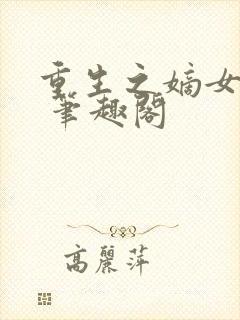 重生之嫡女
筆趣閣
高麗萍